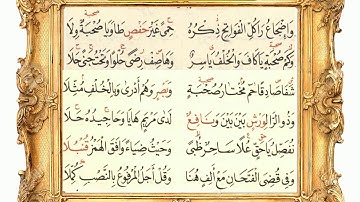 وَإِضْجَاعُ رَا كُلِّ الْفَوَاتِحِ ذِكْرُهُ حِمًى غَيْرَ حَفْصٍ طَا وَيَا صُحْبَةٌ وَلَا
وَكَمْ صُحْبَةٍ يَا كَافَ وَالْخُلْفُ يَاسِرٌ وَهَا صِفْ رِضًى حُلْوًا وَتَحْتَ جَنًى حَلَا
شَفَا صَادِقًا حَم مُخْتَارُ صُحْبَةٍ وَبَصْرٍ وَهُمْ أَدْرَى وَبِالْخُلْفِ مُثِّلَا
وَذُو الرَّا لِوَرْشٍ بَيْنَ بَيْنَ وَنَافِعٌ لَدَى مَرْيَمٍ هَايَا وَحَا جِيدُهُ حَلَا
نُفَصِّلُ يَا حَقٍّ عُلًا سَاحِرٌ ظُبًى وَحَيْثُ ضِيَاءً وَافَقَ الْهَمْزُ قُنْبُلَا
وَفِي قُضِيَ الْفَتْحَانِ مَعْ أَلِفٍ هُنَا وَقُلْ أَجَلُ الْمَرْفُوعُ بِالنَّصْبِ كُمِّلَا